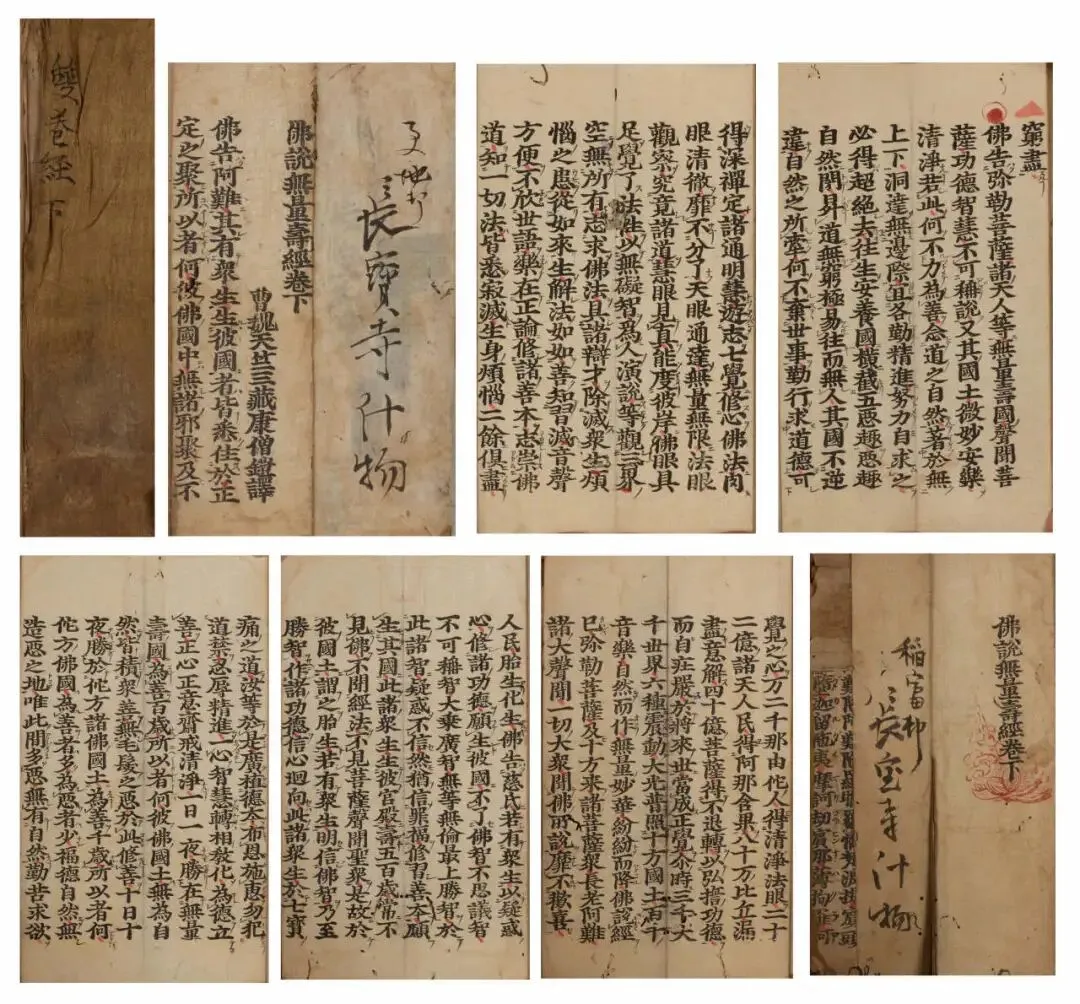 雙卷經 下
長寶寺什物
佛說無量壽經卷下
曹魏天竺三藏康僧鎧譯
佛告阿難其有衆生生彼國者皆悉住於正
定之聚所以者何彼佛國中無諸邪聚及不
得深禪定諸通明慧遊志七覺修心佛法肉
眼清徹靡不分了天眼通達無量無限法眼
觀察究竟諸道慧眼見真能度彼岸佛眼具
足覺了法性以無礙智爲人演說等觀三界
空無所有志求佛法具諸辯才除滅衆生煩
惱之患從如來生解法如如善知習滅音聲
方便不欣世語樂在正論修諸善本志崇佛
道知一切法皆悉寂滅生身煩惱二餘俱盡
窮盡
佛告弥勒菩薩諸天人等無量壽國聲聞菩
薩功德智慧不可稱說又其國土微妙安樂
清淨若此何不力為善念道之自然著於無
上下洞達無邊際宜各勤精進努力自求之
必得超絕去往生安養國横截五惡趣惡趣
自然閇昇道無窮極易往而無人其國不逆
違自然之所牽何不棄世事勤行求道德可
痛之道汝等於是廣植德本布恩施惠勿犯
道禁忍辱精進一心智慧轉相教化為德立
善正心正意齋戒清淨一日一夜勝在無量
壽國為善百歲所以者何彼佛國土無為自
然皆積衆善無毛髮之惡於此修善十日十
夜勝於佗方諸佛國土為善千歲所以者何
佗方佛國為善者多為惡者少福德自然無
造惡之地唯此間多惡無有自然勤苦求欲
人民胎生化生佛告慈氏若有衆生以疑惑
心修諸功德願生彼國不了佛智不思議智
不可稱智大乘廣智無等無倫最上勝智於
此諸智疑惑不信然猶信罪福修習善本願
生其國此諸衆生生彼宮殿壽五百歲常不
見佛不聞經法不見菩薩聲聞聖衆是故於
彼國土謂之胎生若有衆生明信佛智乃至
勝智作諸功德信心迴向此諸衆生於七寶
覺之心万二千那由佗人得清淨法眼二十
二億諸天人民得阿那含果八十万比丘漏
盡意解四十億菩薩得不退轉以弘誓功德
而自莊嚴於將來世當成正覺尒時三千大
千世界六種震動大光普照十方國土百千
音樂自然而作無量妙華紛紛而降佛說經
已弥勒菩薩及十方來諸菩薩衆長老阿難
諸大聲聞一切大衆聞佛所說靡不歡喜
佛說無量壽經卷下
稲富
長宝寺什物